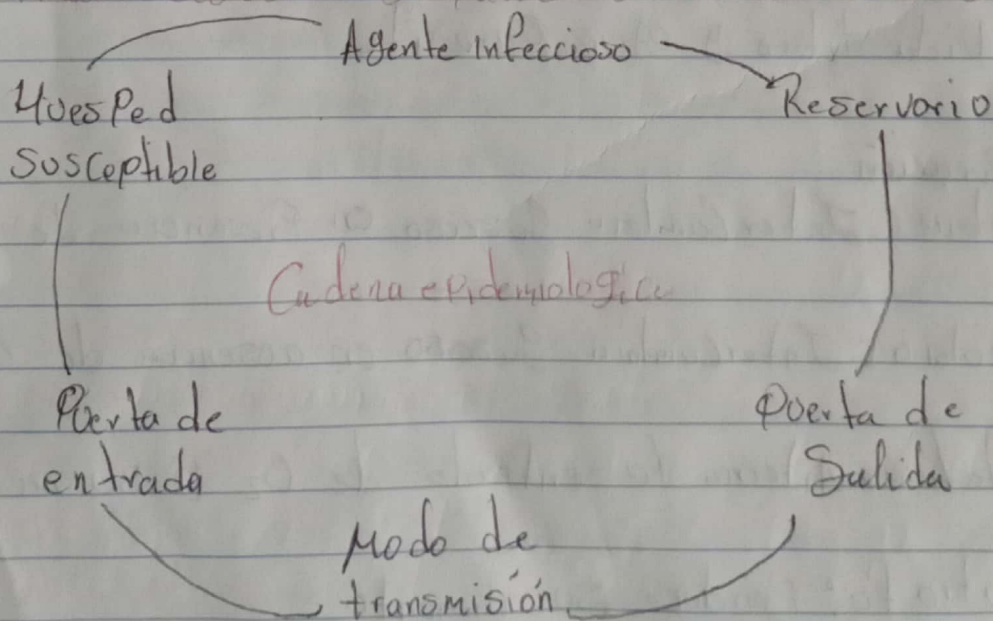 Agente infeccioso
Huesped
susceptible
Reservorio
Cadena epidemiologica
Puerta de
entrada
Puerta de
Salida
Modo de
transmisión